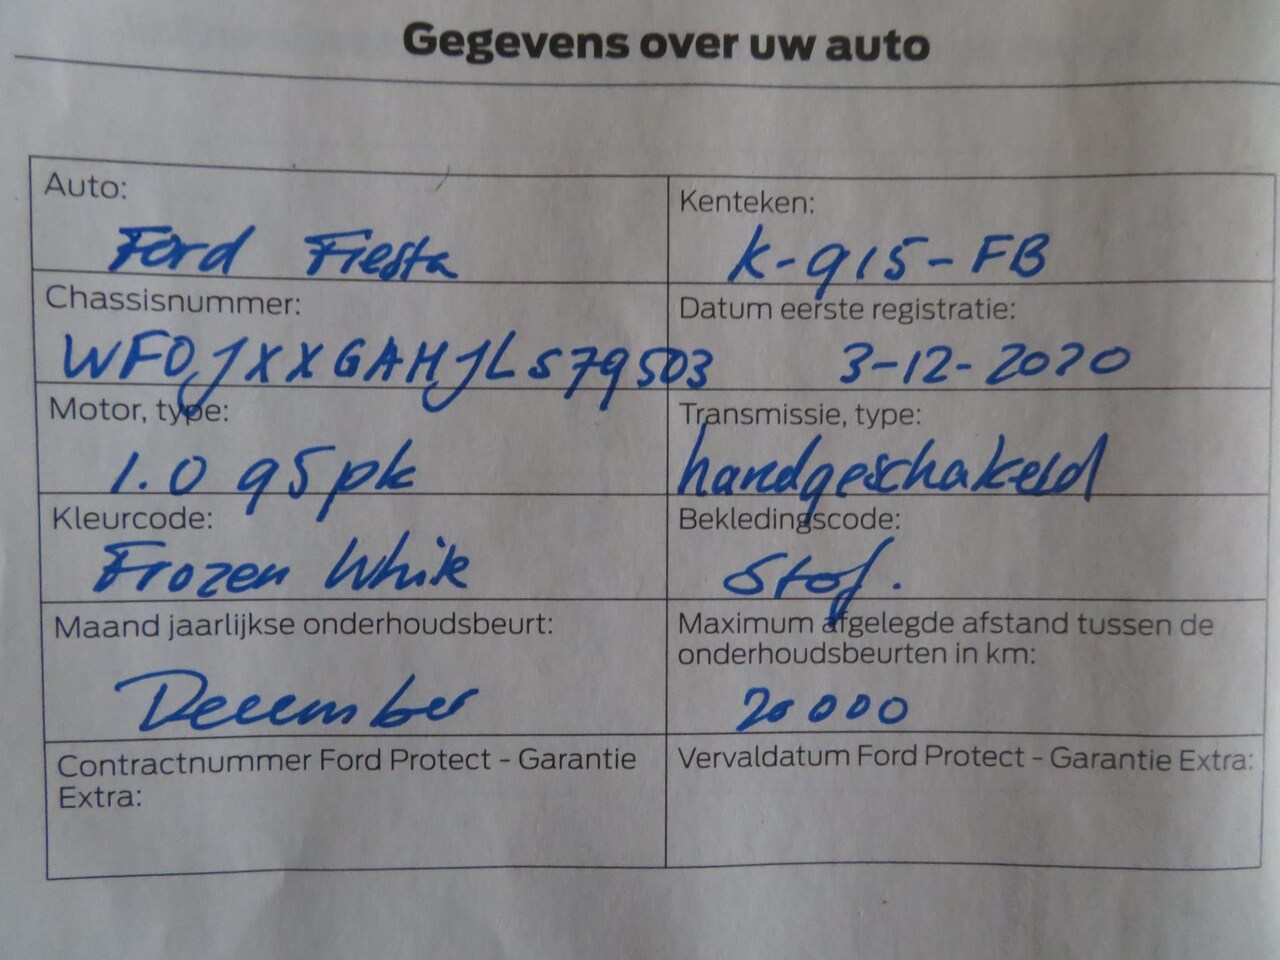 Gegevens over uw auto
Auto:
Ford Fiesta
Kenteken:
K-915-FB
Chassisnummer:
WF0JXXGAHJLS79503
Datum eerste registratie:
3-12-2020
Motor, type:
1.0 95pk
Transmissie, type:
handgeschakeld
Kleurcode:
Frozen White
Bekledingscode:
Stof.
Maand jaarlijkse onderhoudsbeurt:
December
Maximum afgelegde afstand tussen de
onderhoudsbeurten in km:
20000
Contractnummer Ford Protect - Garantie
Extra:
Vervaldatum Ford Protect - Garantie Extra: